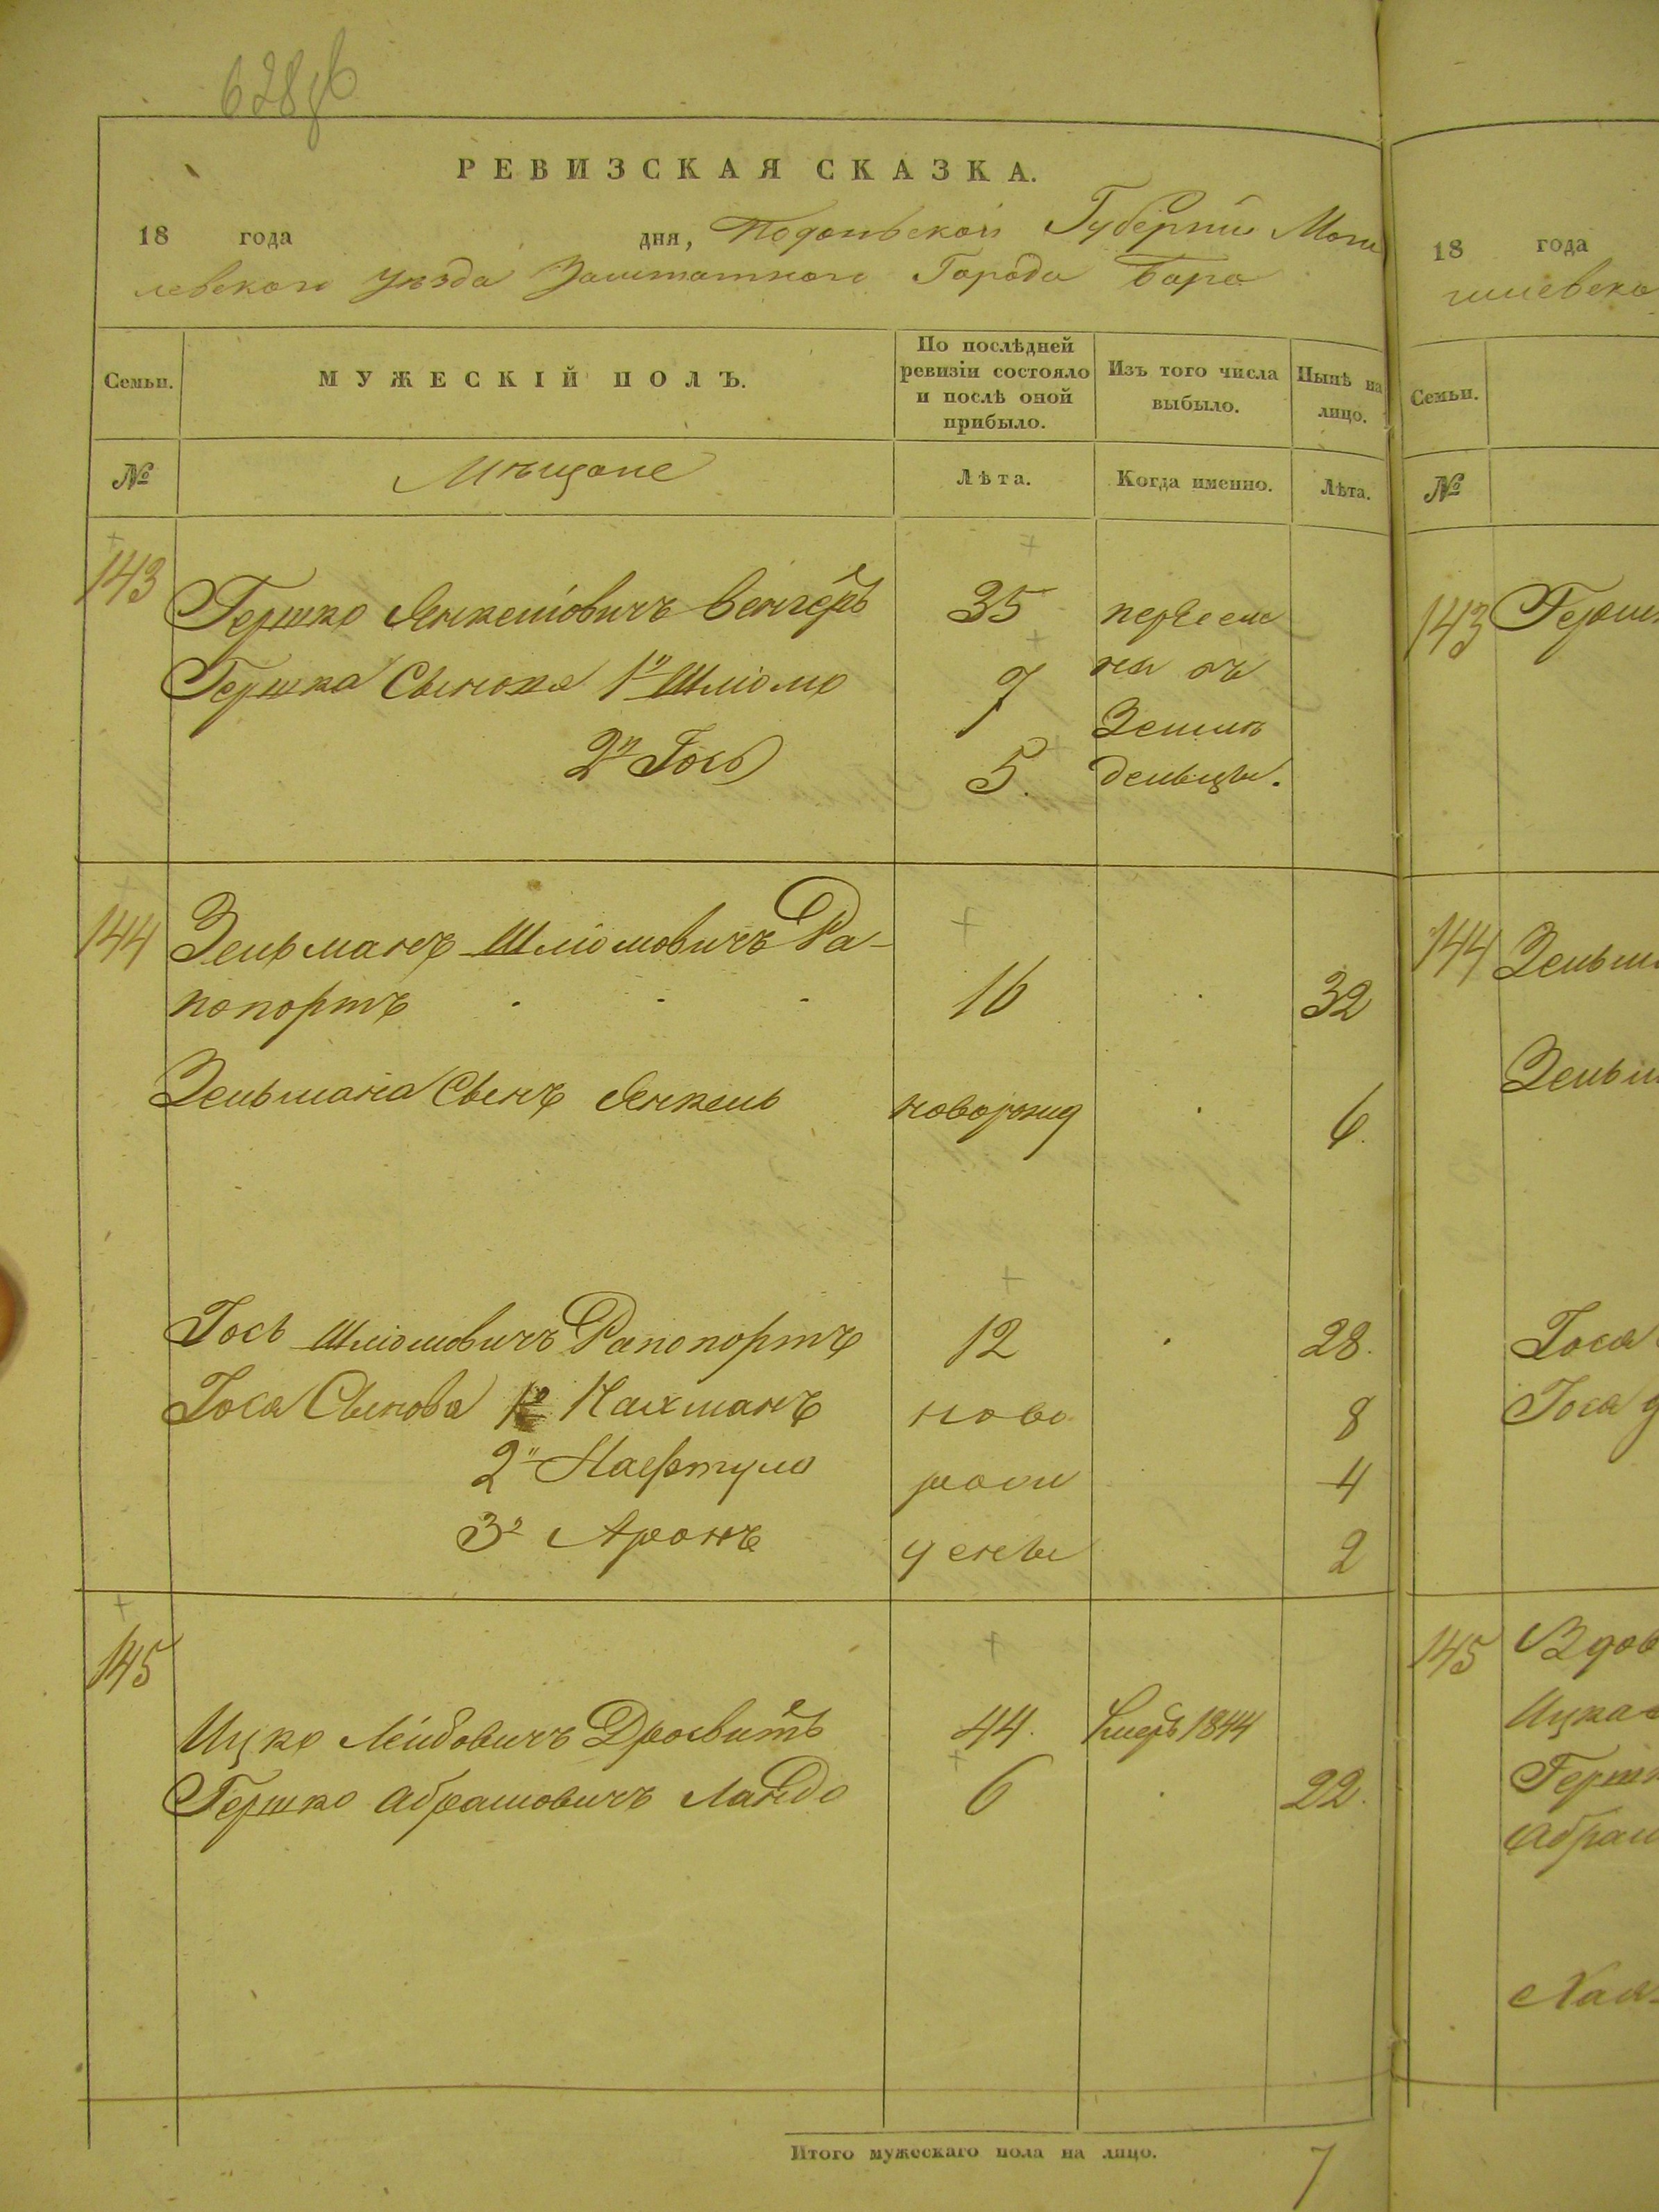 628об
РЕВИЗСКАЯ СКАЗКА.
18 года дня, Подольской Губерніи Моги
левскаго уѣзда Заштатнаго Города Бара
Семьи.
МУЖЕСКІЙ ПОЛЪ.
По послѣдней ревизіи состояло и послѣ оной прибыло.
Изъ того числа выбыло.
Нынѣ на лицо.
№
Мѣщане
Лѣта.
Когда именно.
Лѣта.
143 Гершко Янкелiовичъ Венгеръ 35 перечсле
Гершка Сынова 1й Шліома 7 ны въ
Земле
2й Гось 5. дельцы.
144 Зельманъ Шліомовичъ Ра-
попортъ 16 32
Зельмана Сынъ Янкель новорожд 6.
Гось Шліомовичъ Рапопортъ 12 28.
Гося Сынова 1й Нахманъ ново 8
2й Нафтула рож 4
3й Аронъ дены 2
145
Ицко Лейбовичъ 44. Умеръ 1844
Гершко Абрамовичъ Ландо 6 22.
Итого мужескаго пола на лицо. 7
18 года
гилевска
Семьи.
№
143 Герш
144 Зельм
Зельм
Гося
Гося д
145 Вдов
Ицка
Гершк
Абрам
Хая